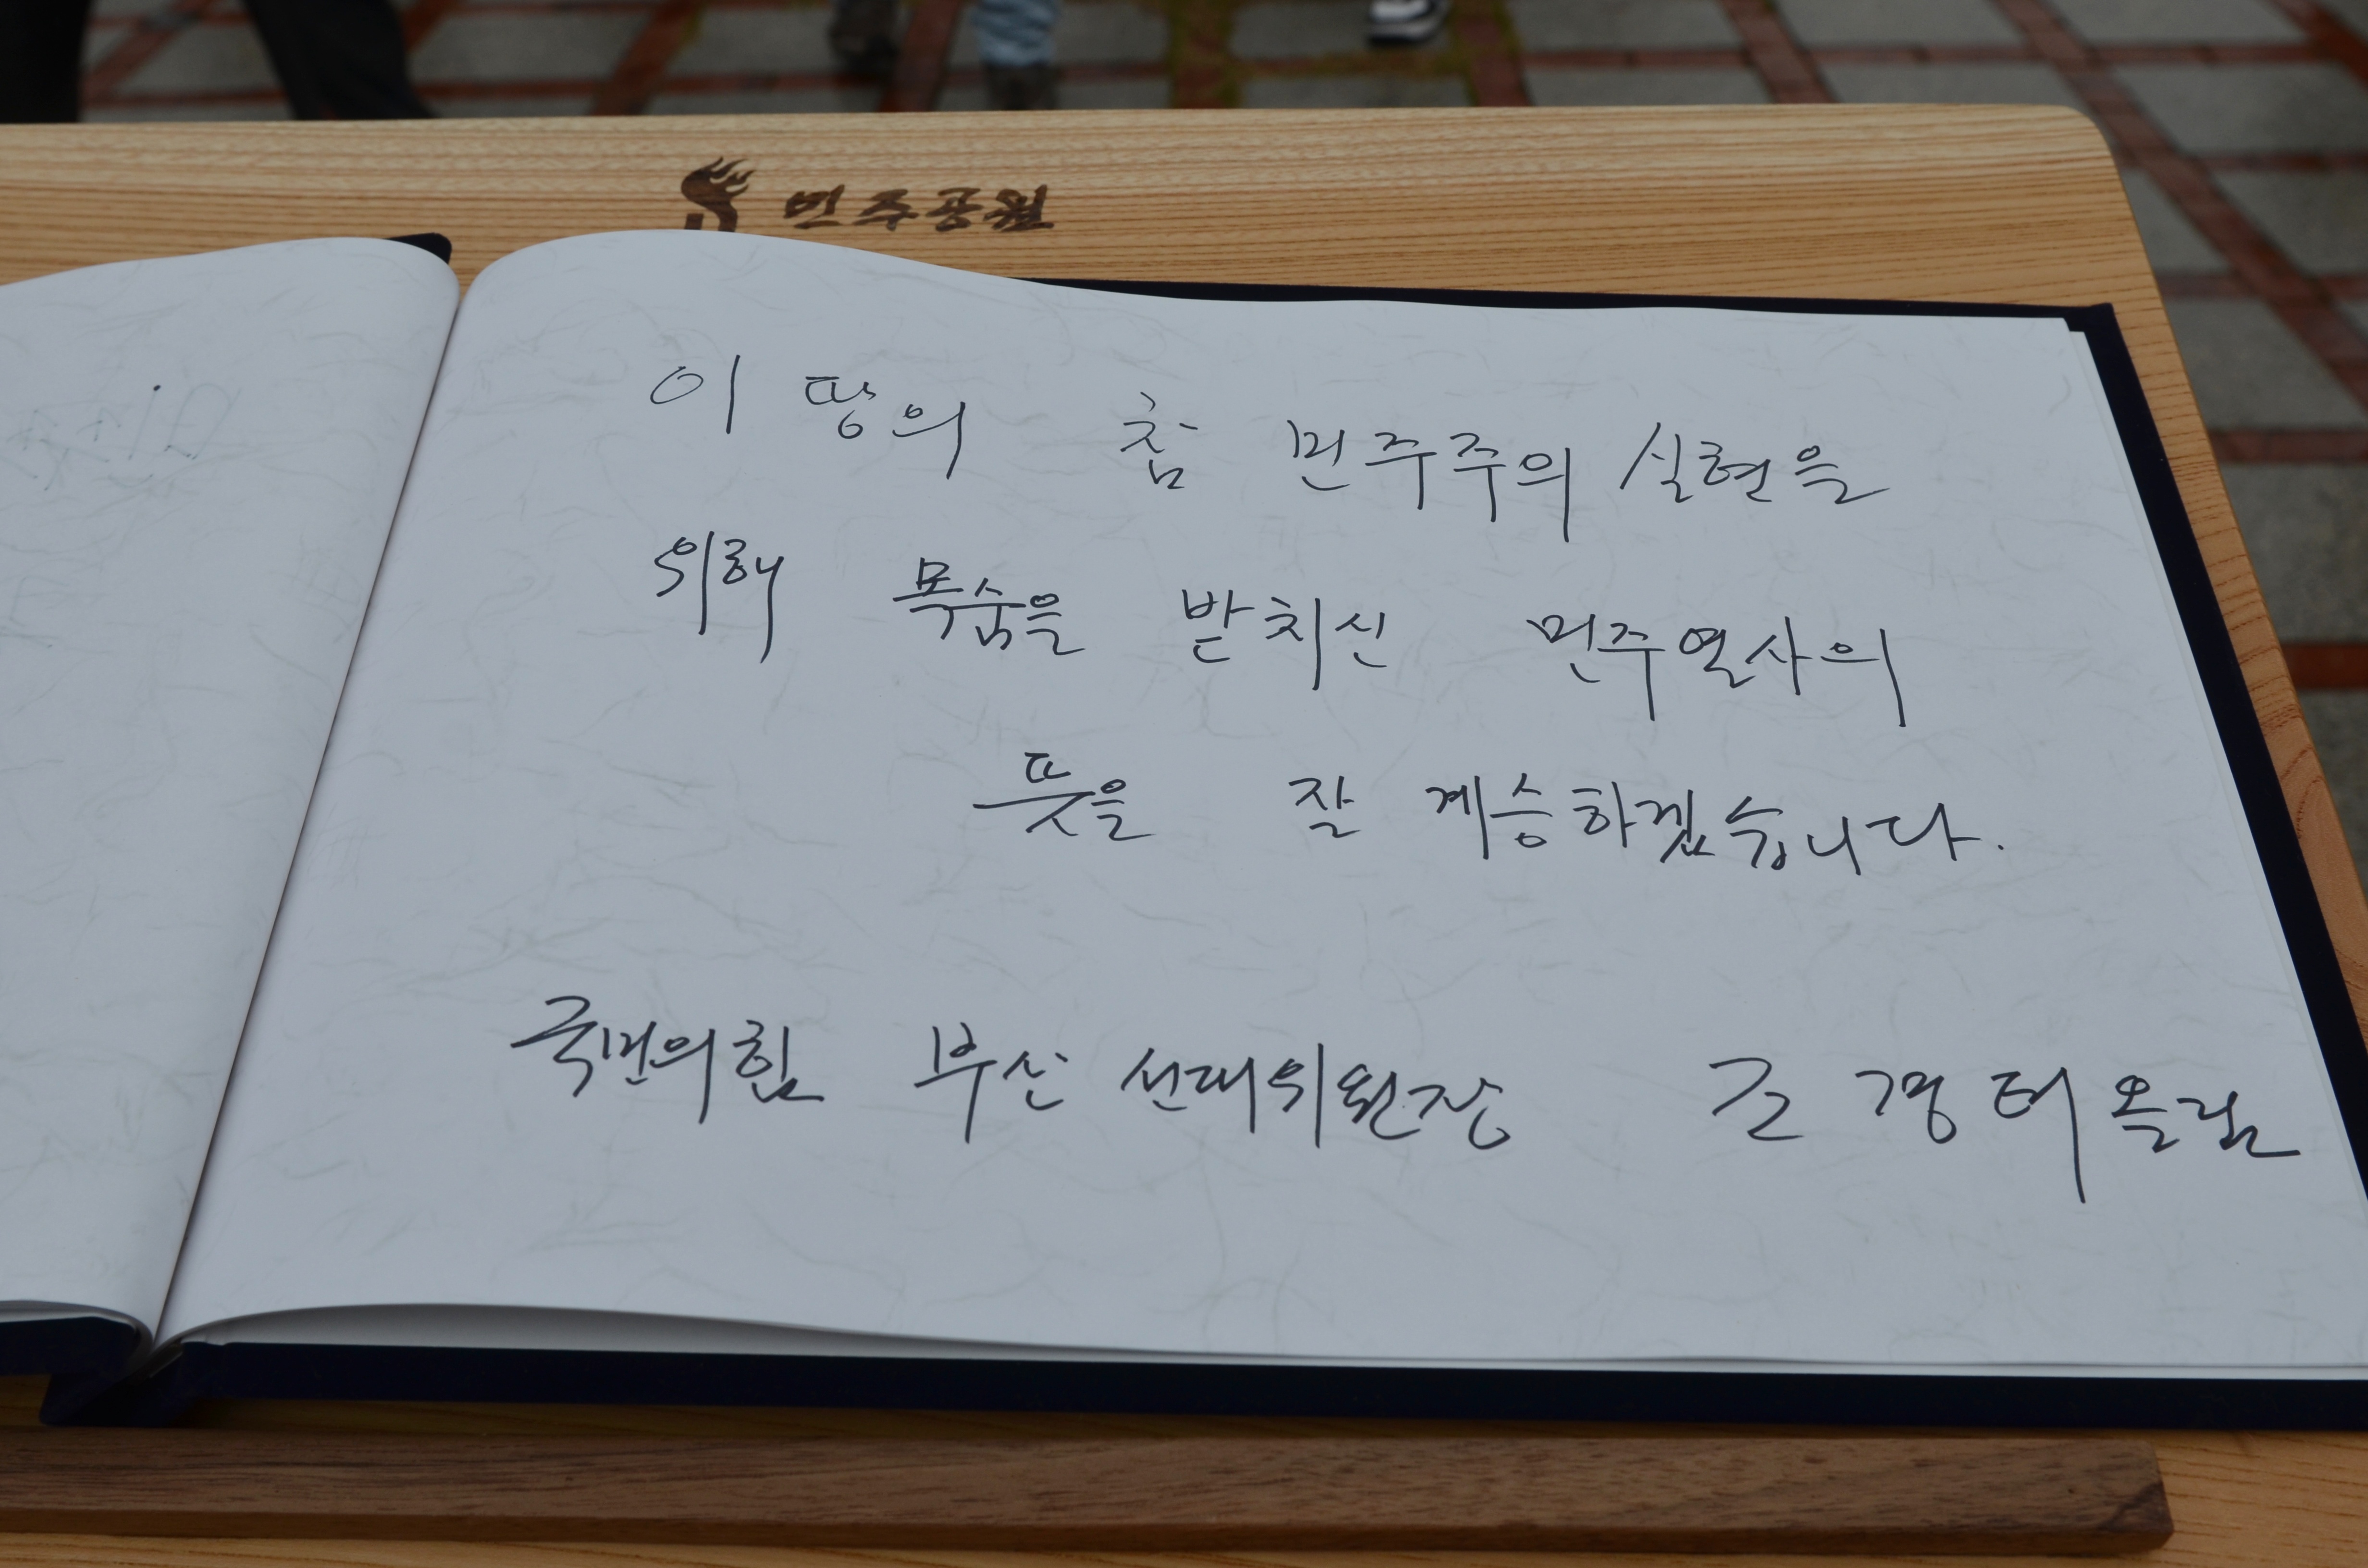 민주공원
이 땅의 참 민주주의 실현을
위해 목숨을 받치신 민주열사의
뜻을 잘 계승하겠습니다.
국민의힘 부산 선대위원장 조경태 올림